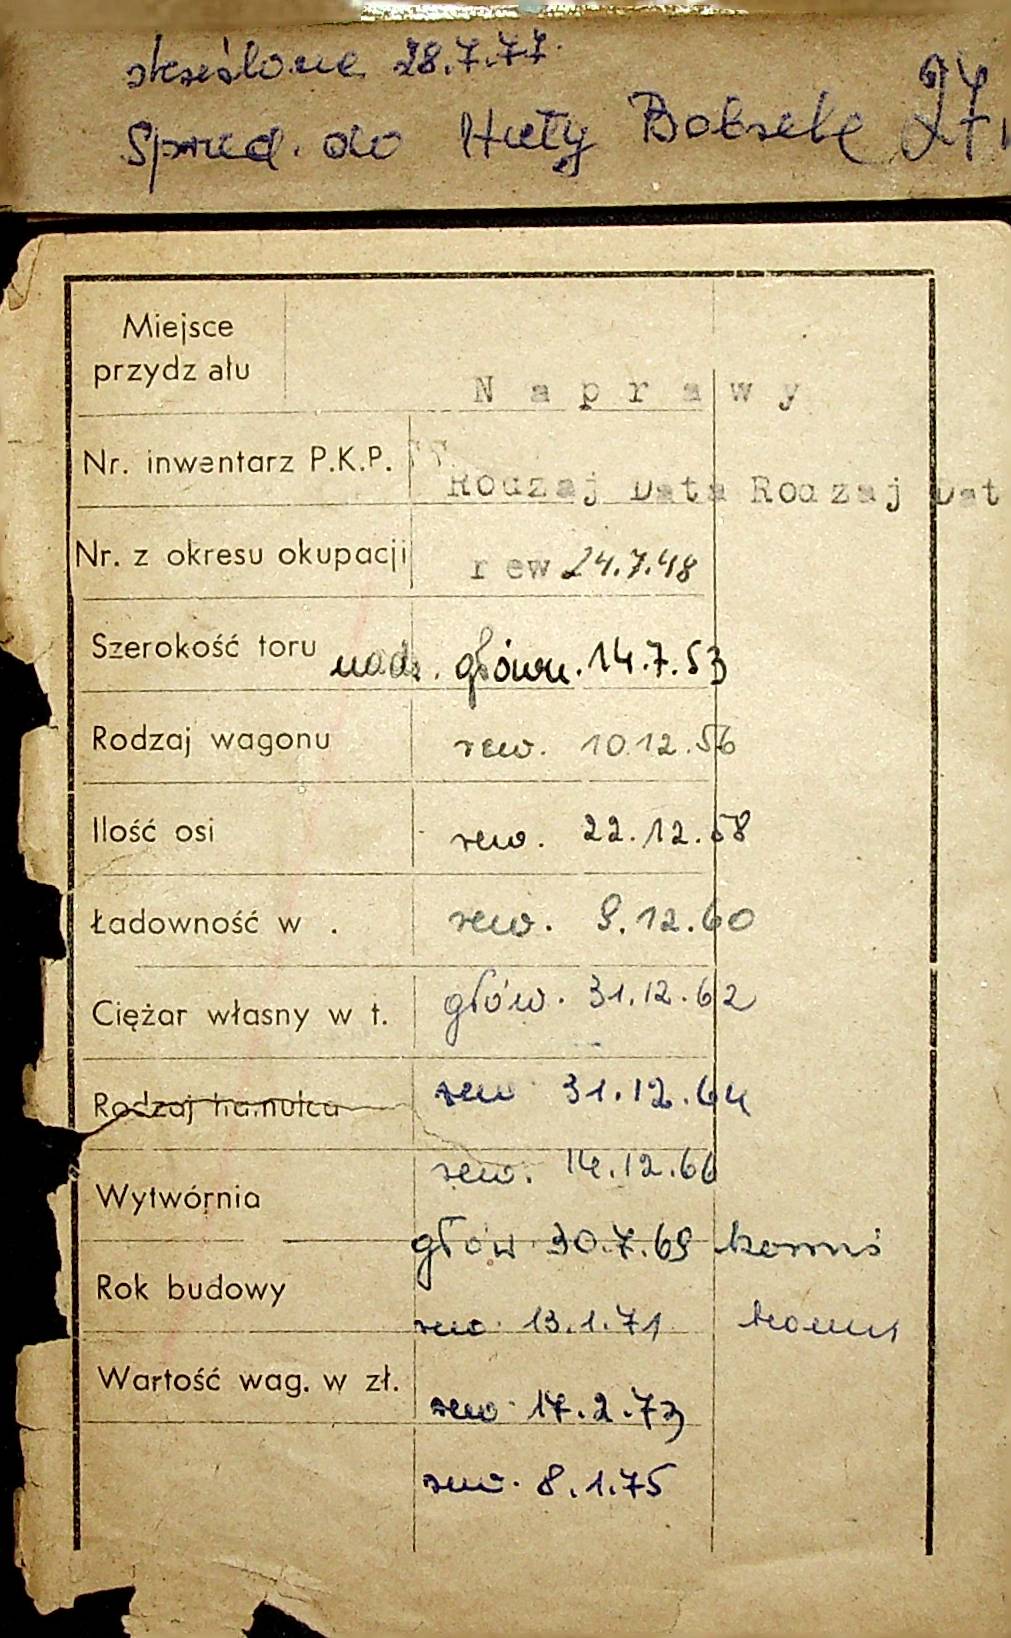 skreślone 28.7.77.
Sprzed. do Huty Bobrek 27.
Miejsce
przydz ału
Naprawy
Nr. inwentarz P.K.P.
Rodzaj Data Rodzaj Dat
Nr. z okresu okupacji
rew 24.7.48
Szerokość toru
nadz. główn. 14.7.53
Rodzaj wagonu
rew. 10.12.56
Ilość osi
rew. 22.12.58
Ładowność w .
rew. 9.12.60
Ciężar własny w t.
głów. 31.12.62
Rodzaj hamulca
rew 31.12.64
rew. 14.12.66
Wytwórnia
głów 30.7.69
Rok budowy
rew. 13.1.71
Wartość wag. w zł.
rew. 17.2.73
rew. 8.1.75